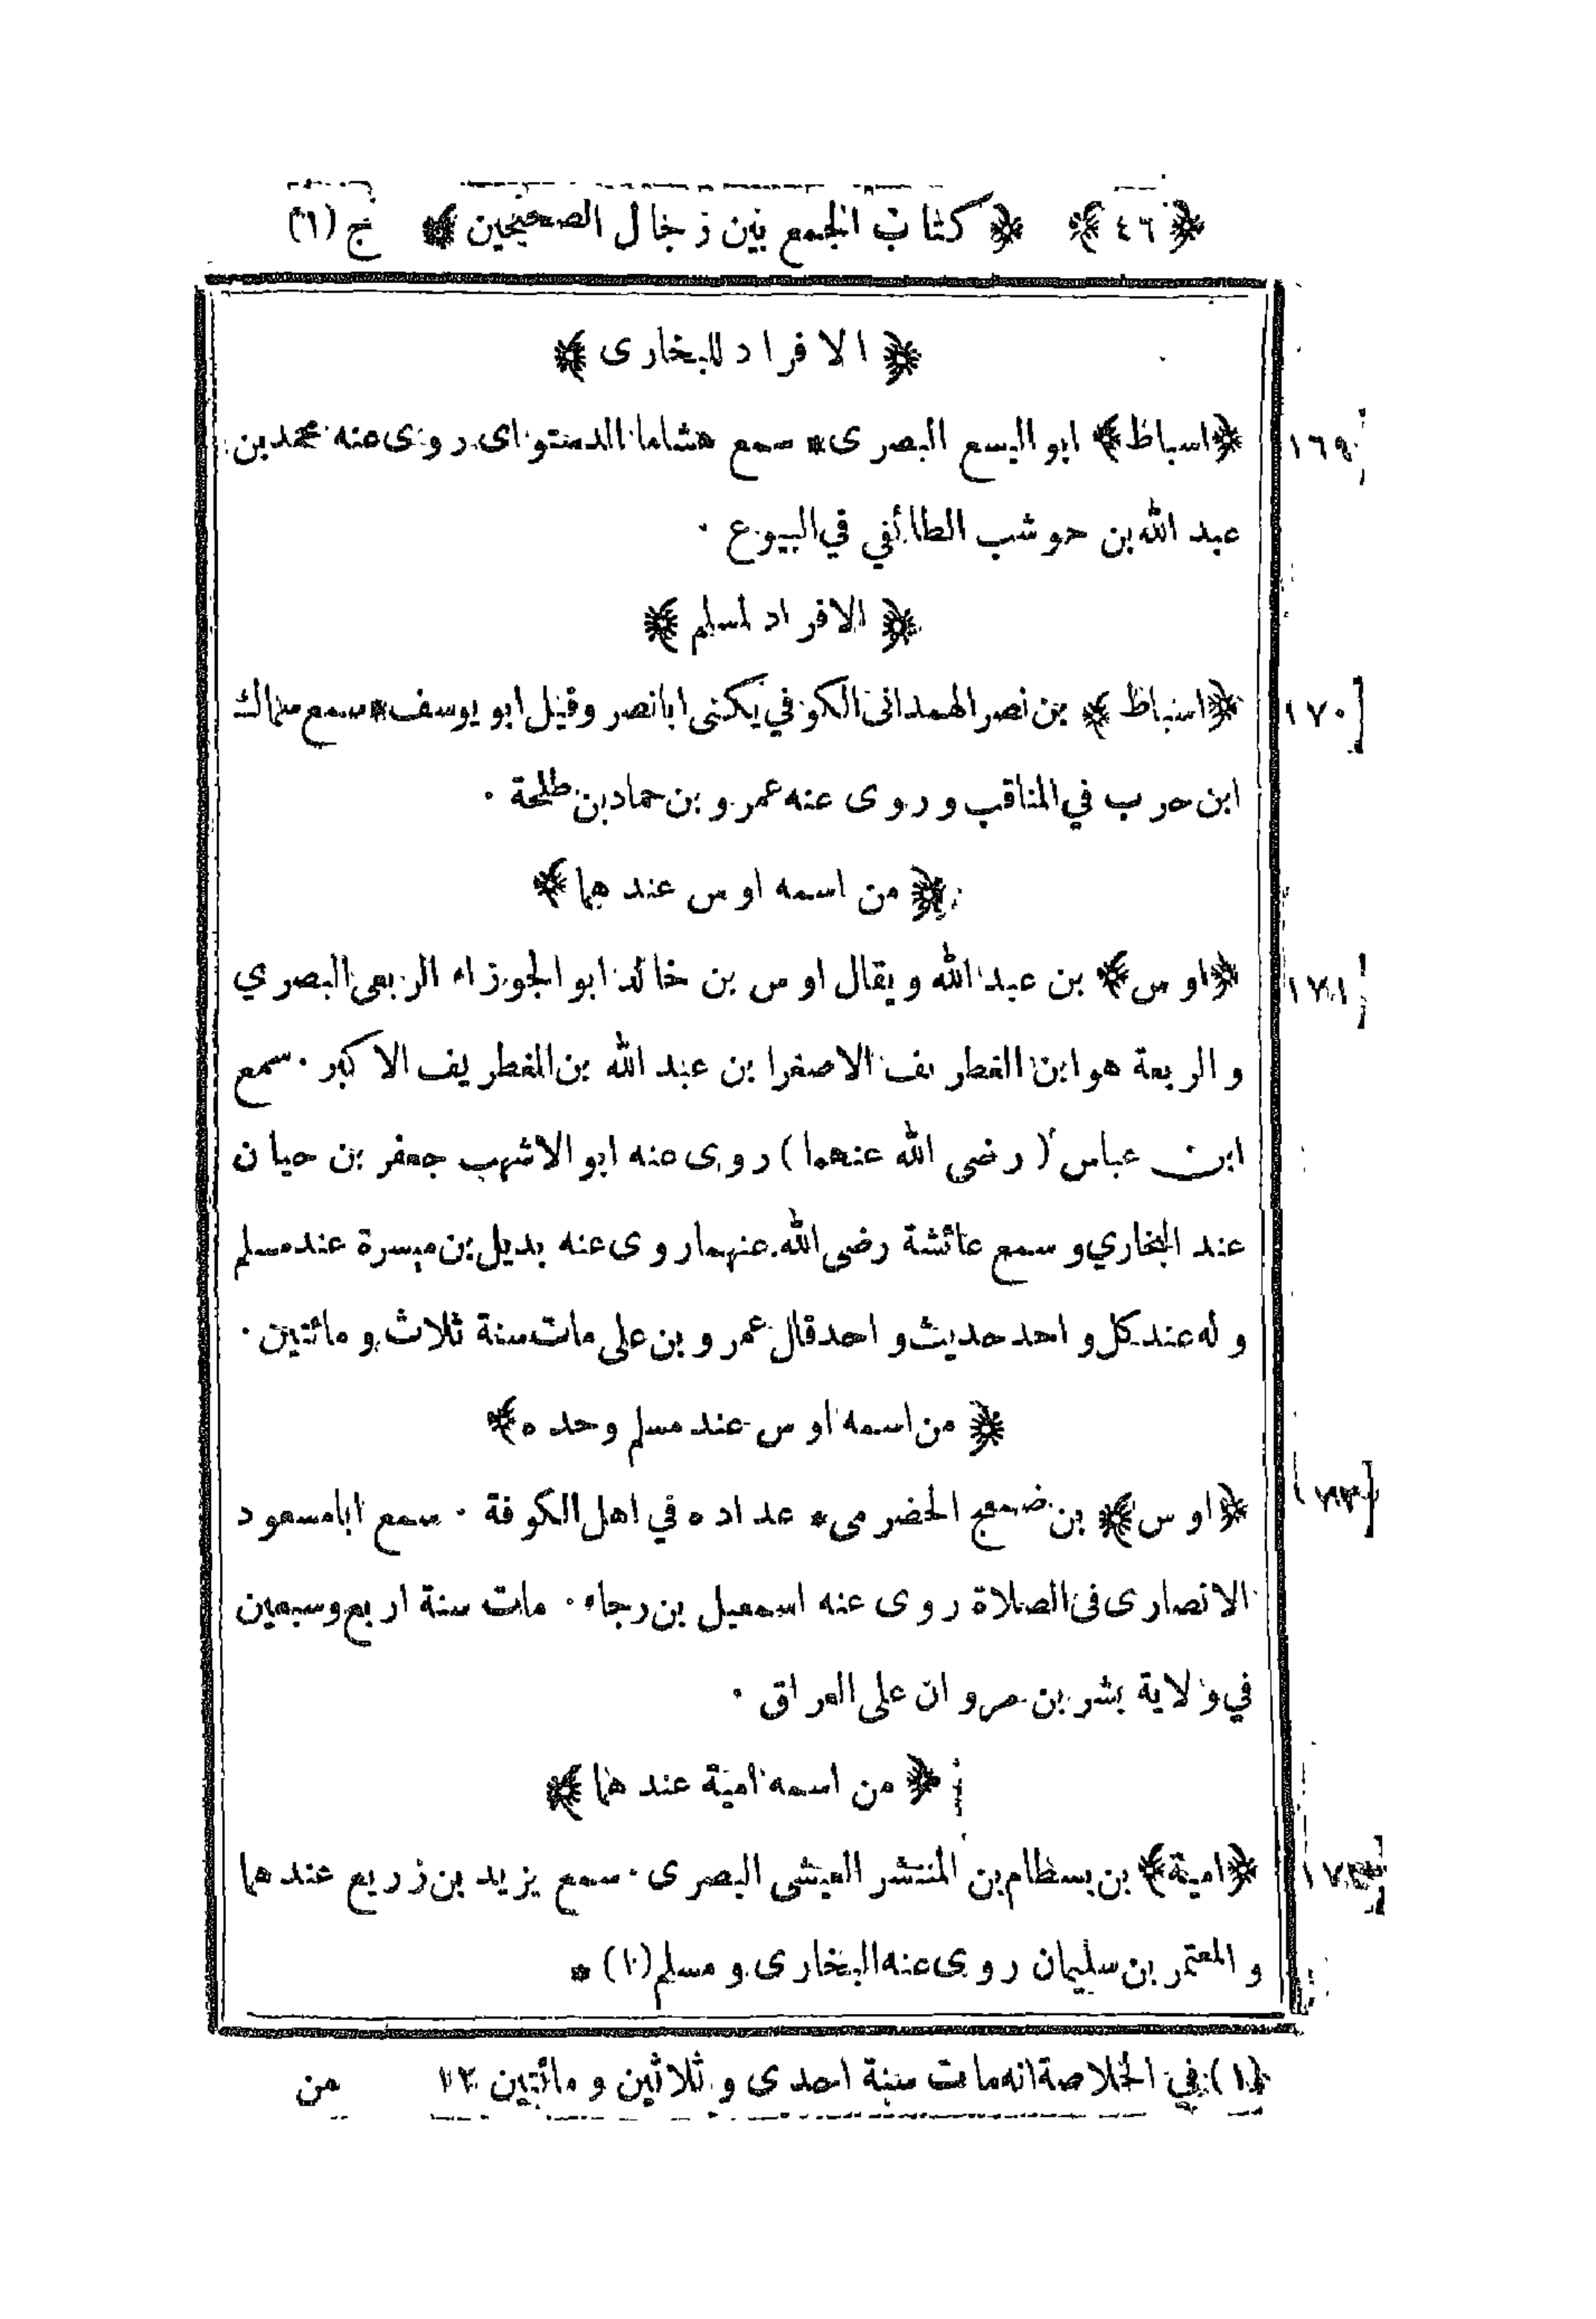 ﴿٤٦﴾ ﴿كتاب الجمع بين رجال الصحيحين﴾ ج (١)
﴿الافراد للبخارى﴾
١٦٩ ﴿اسباط﴾ ابو اليسع البصرى * سمع هشاما الدستوائى روى عنه محمد بن
عبد الله بن حوشب الطائفي في البيوع ٠
﴿الافراد لمسلم﴾
[١٧٠ ﴿اسباط﴾ بن نصر الهمدانى الكوفي يكنى ابا نصر وقيل ابو يوسف * سمع سماك
ابن حرب في المناقب وروى عنه عمرو بن حماد بن طلحة ٠
﴿من اسمه اوس عندهما﴾
١٧١ ﴿اوس﴾ بن عبد الله ويقال اوس بن خالد ابو الجوزاء الربعى البصري
والربعة هو ابن الغطريف الاصغر ابن عبد الله بن الغطريف الاكبر ٠ سمع
ابن عباس (رضى الله عنهما) روى عنه ابو الاشهب جعفر بن حيان
عند البخاري وسمع عائشة رضى الله عنهما روى عنه بديل بن ميسرة عند مسلم
وله عند كل واحد حديث واحد قال عمرو بن على مات سنة ثلاث ومائتين ٠
﴿من اسمه اوس عند مسلم وحده﴾
﴿اوس﴾ بن ضمعج الحضرمى * عداده في اهل الكوفة ٠ سمع ابا مسعود
الانصارى فى الصلاة روى عنه اسمعيل بن رجاء ٠ مات سنة اربع وسبعين
في ولاية بشر بن مروان على العراق ٠
﴿من اسمه امية عندهما﴾
﴿امية﴾ بن بسطام بن المنتشر العيشى البصرى ٠ سمع يزيد بن زريع عندهما
والمعتمر بن سليمان روى عنه البخارى ومسلم (١) *
(١) في الخلاصة انه مات سنة احدى وثلاثين ومائتين ١٢ من